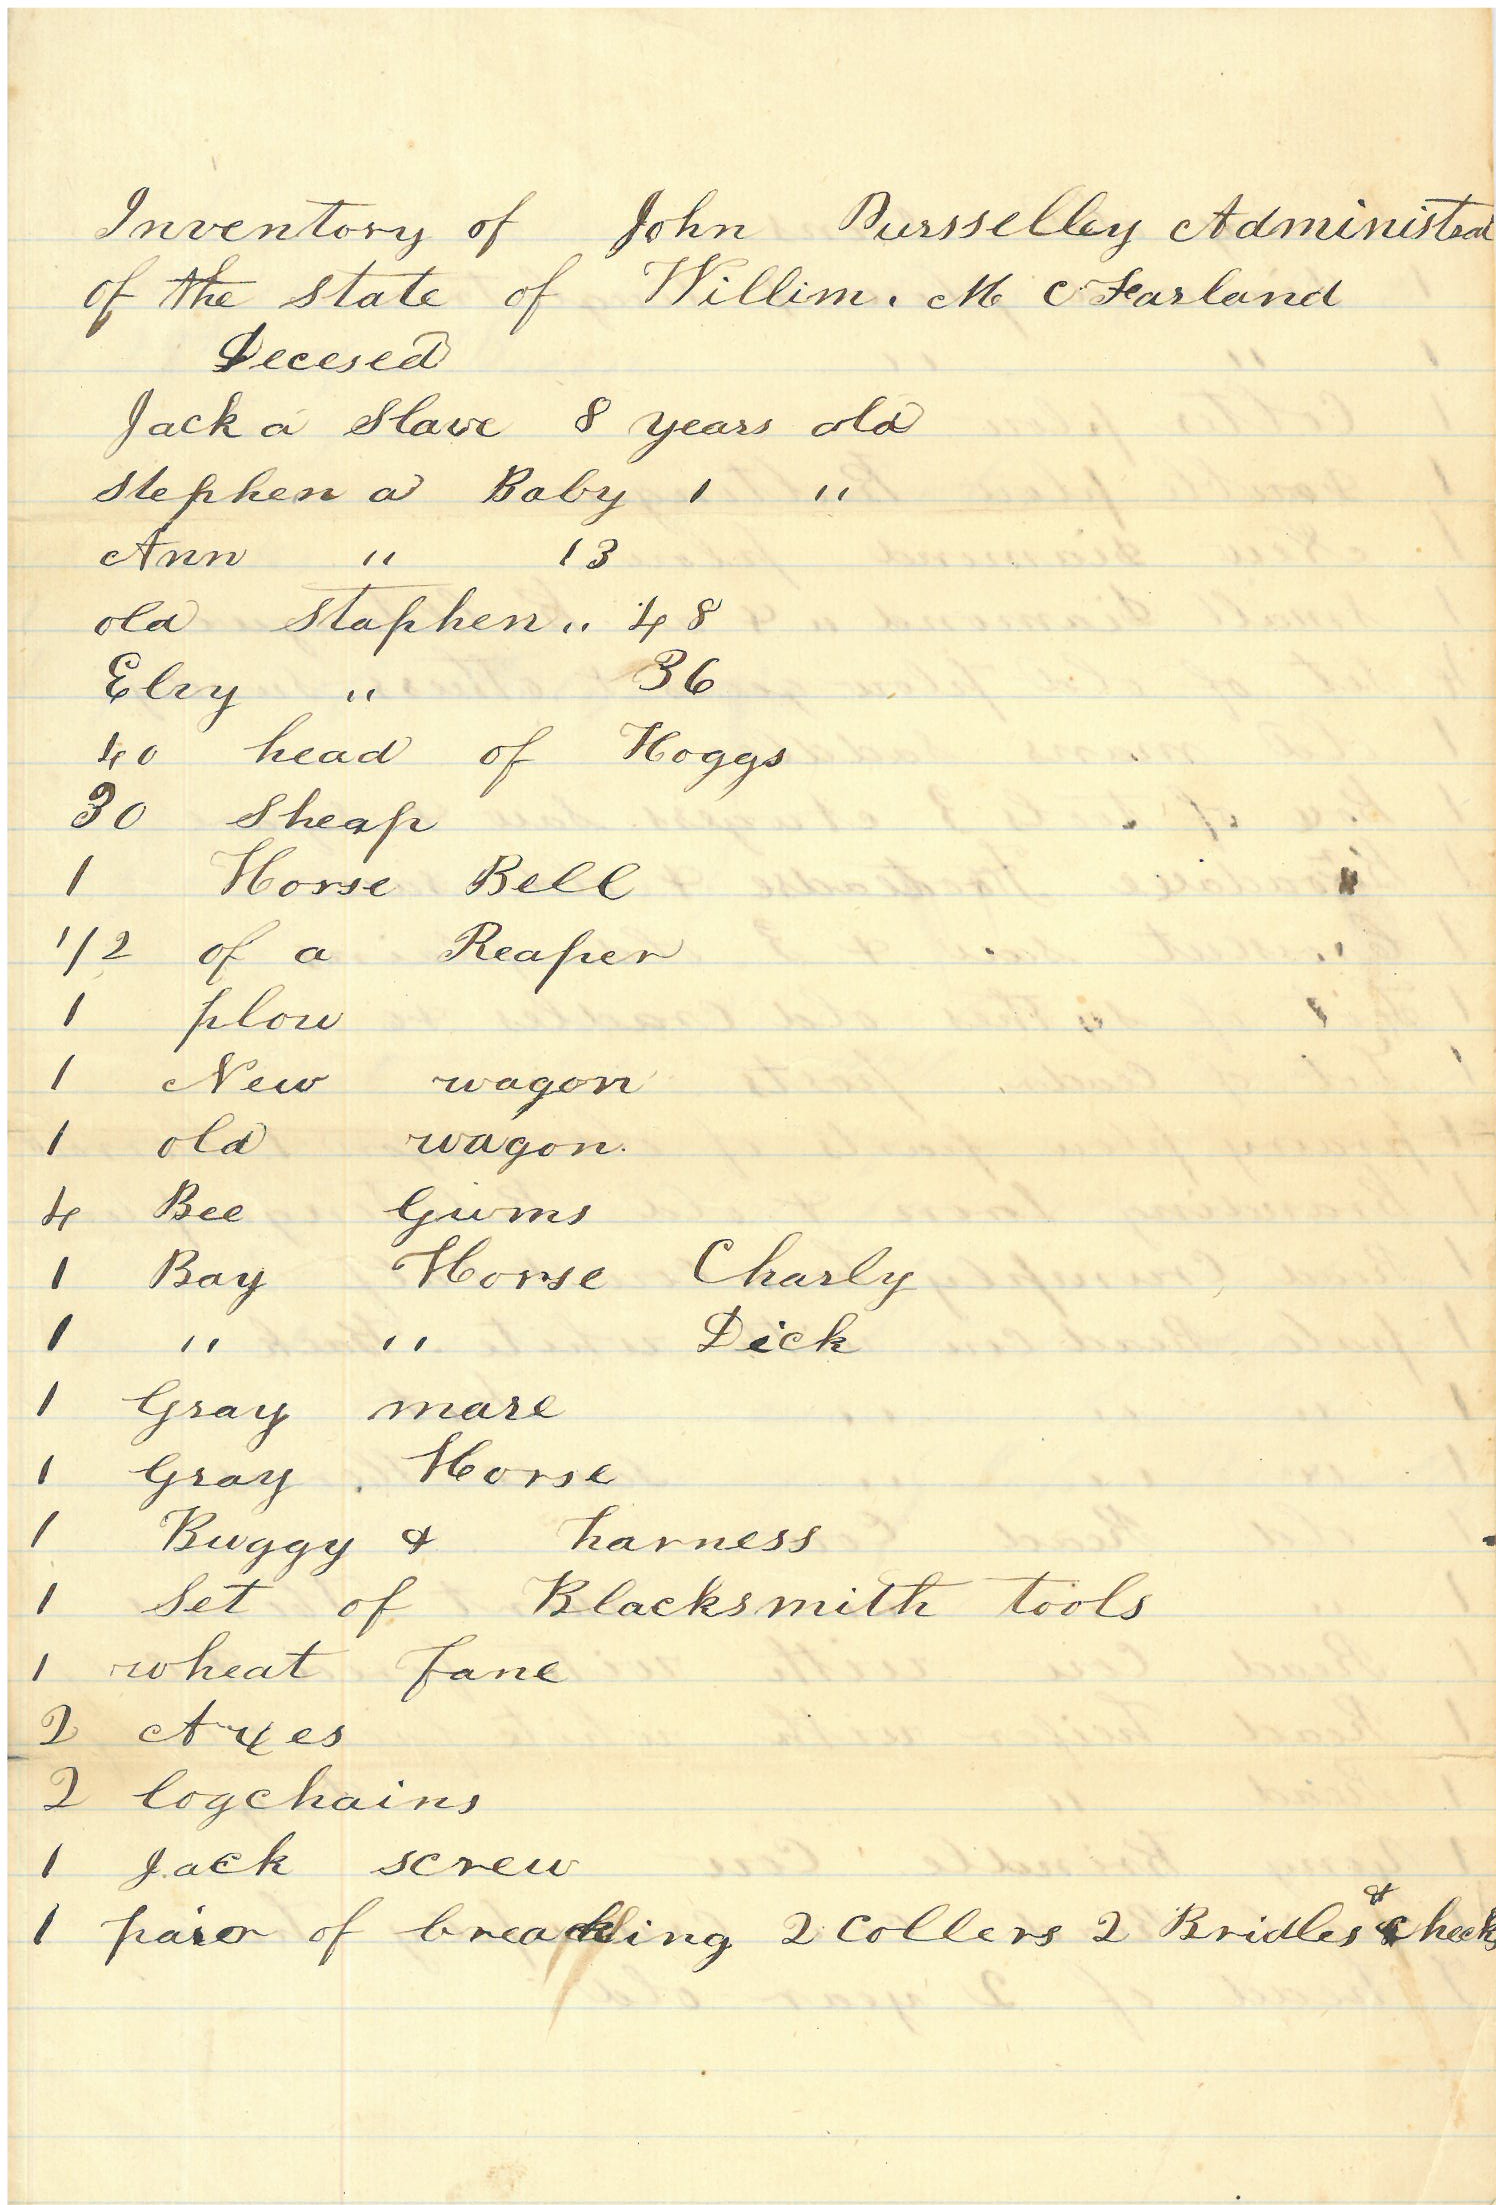 Inventory of John Pursselley Administrat
of the state of Willim. Mc Farland
Decesed
Jack a Slave 8 years old
Stephen a Baby 1 "
Ann " 13
old Staphen " 48
Elvy " 36
40 head of Hoggs
30 Sheap
1 Horse Bell
1/2 of a Reaper
1 plow
1 New wagon
1 old wagon.
4 Bee Gums
1 Bay Horse Charly
1 " " Dick
1 Gray mare
1 Gray Horse
1 Buggy & harness
1 Set of Blacksmith tools
1 wheat fane
2 Axes
2 logchains
1 Jack screw
1 pair of breackling 2 collers 2 Bridles & Checks